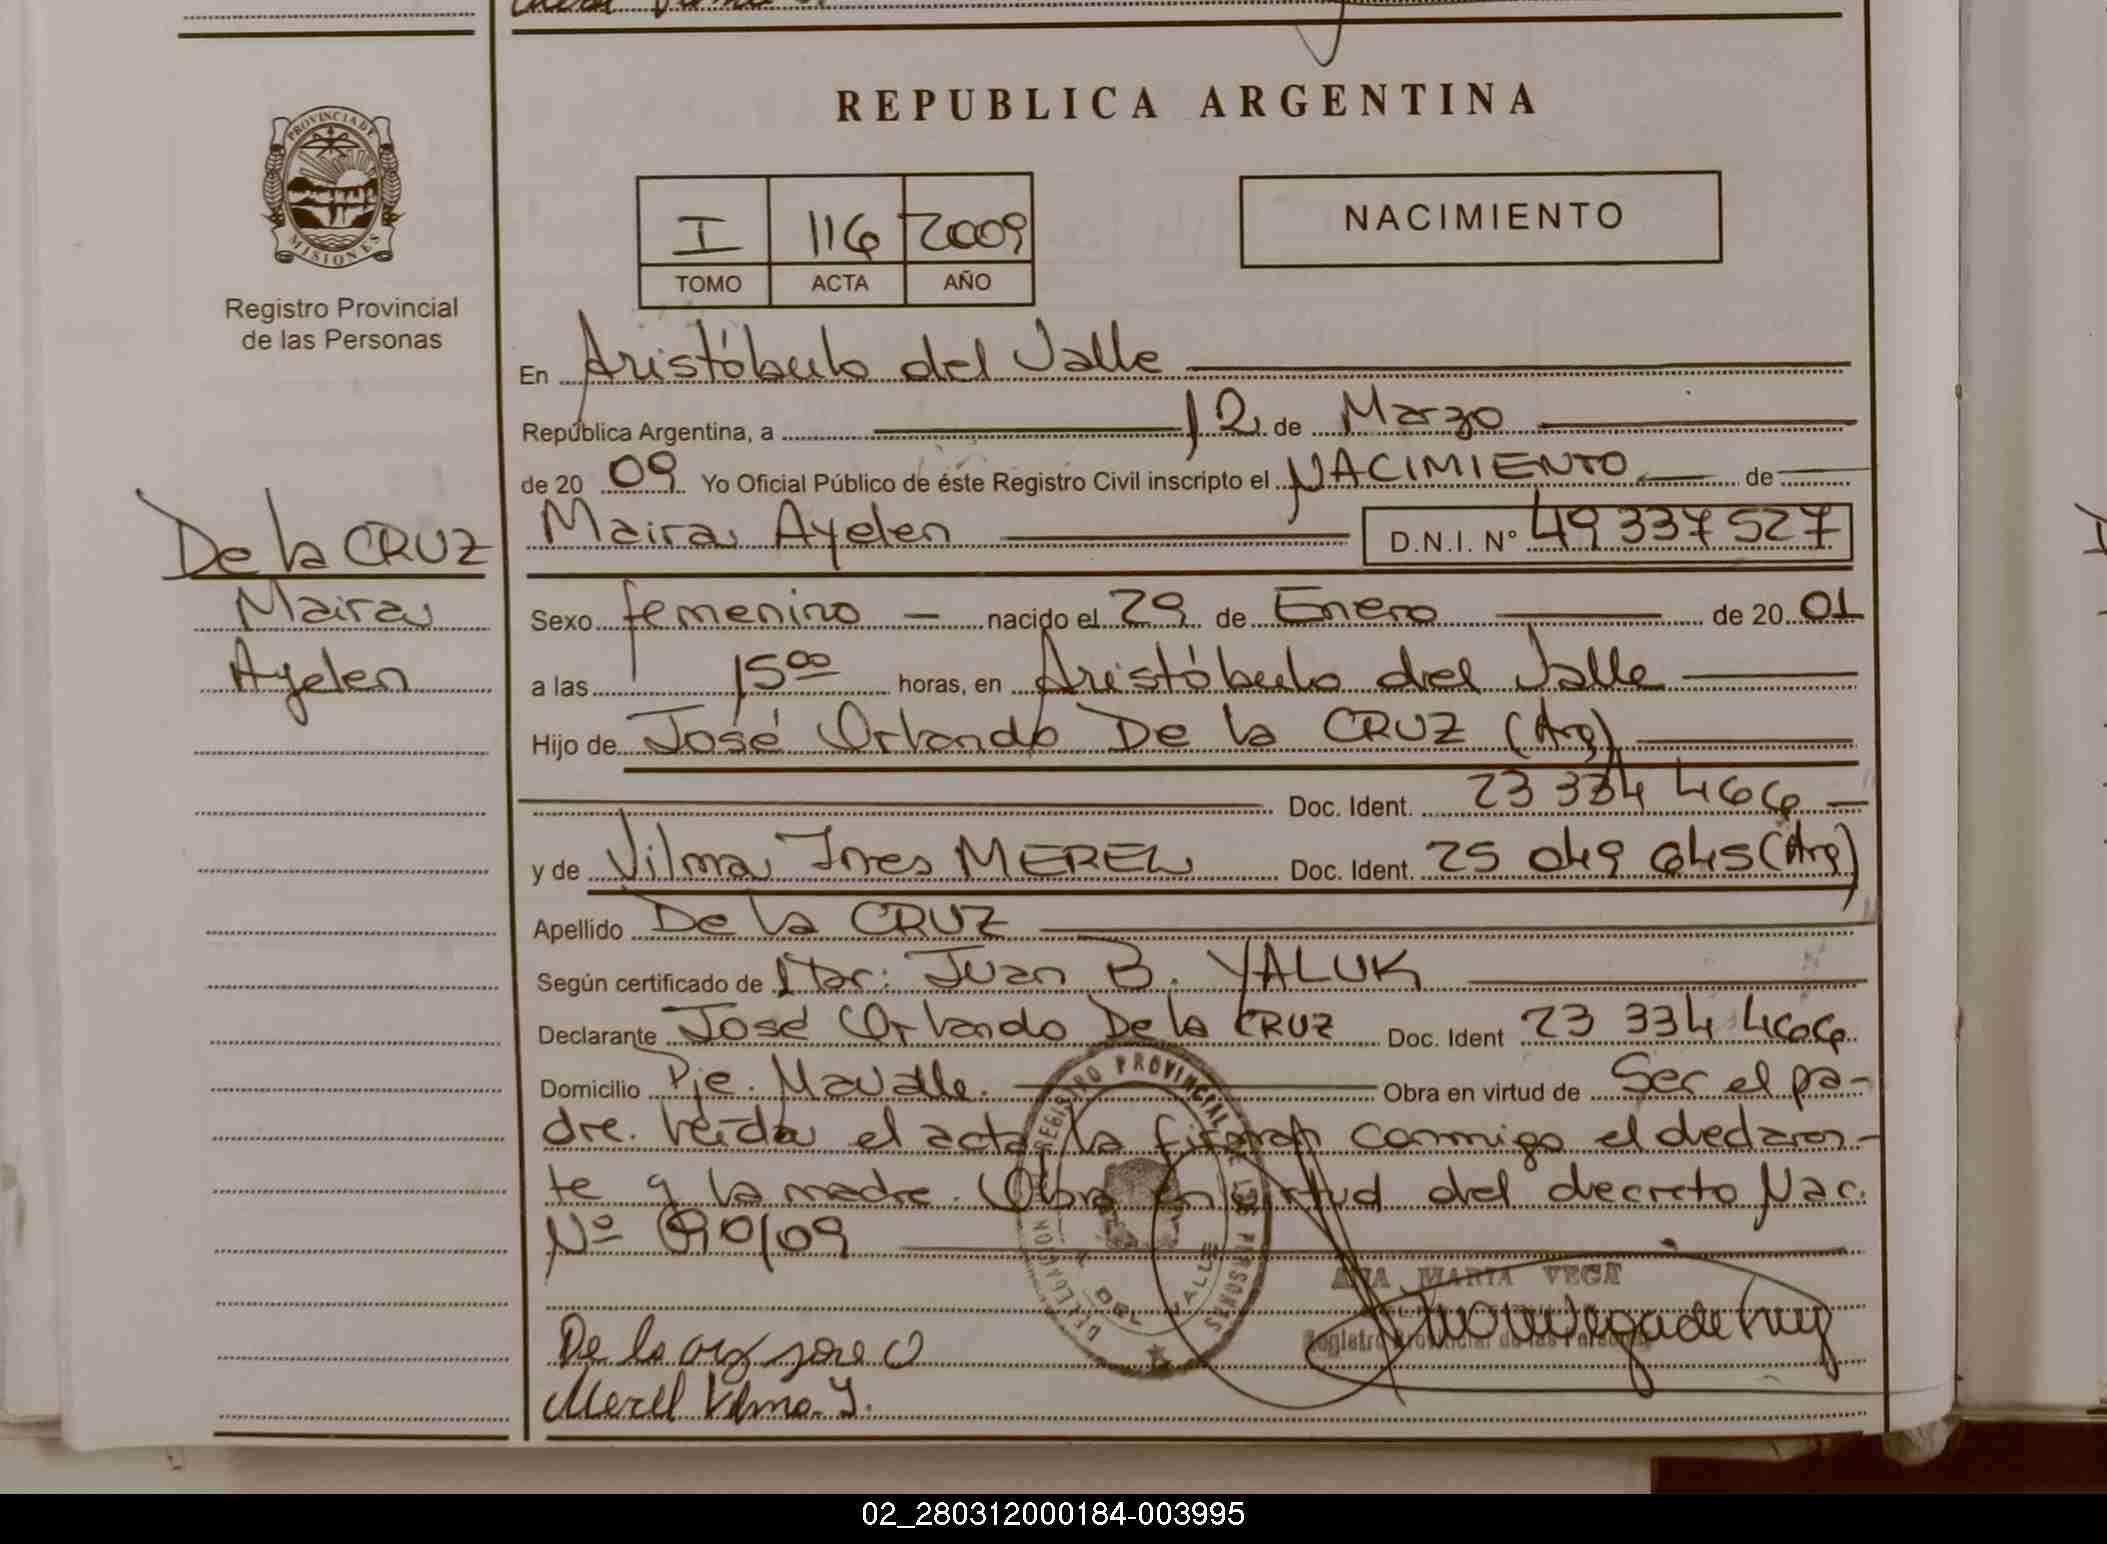 REPUBLICA ARGENTINA
PROVINCIA DE
MISIONES
Registro Provincial
de las Personas
I 116 2009
TOMO ACTA AÑO
NACIMIENTO
En Aristóbulo del Valle
República Argentina, a 12 de Marzo
de 20 09 Yo Oficial Público de éste Registro Civil inscripto el NACIMIENTO de
De la CRUZ
Maira
Ayelen
Maira Ayelen D.N.I. N° 49 337 527
Sexo femenino nacido el 29 de Enero de 20 01
a las 15 00 horas, en Aristóbulo del Valle
Hijo de José Orlando De la CRUZ (Arg)
Doc. Ident. 23 334 466
y de Vilma Ines MEREL Doc. Ident. 25 049 645 (Arg)
Apellido De la CRUZ
Según certificado de Mar: Juan B. YALUK
Declarante José Orlando De la CRUZ Doc. Ident 23 334 466
Domicilio Pje. Mavalle. Obra en virtud de Ser el pa-
dre. leída el acta la firman conmigo el declaran-
te y la madre. Obra en virtud del decreto Nac.
Nº 90/09
REGISTRO PROVINCIAL DE LAS PERSONAS
DELEGACION
A. DEL VALLE
ANA MARIA VEGA
Registro Provincial de las Personas
De la cruz jose O
Merel Vilma Y.
02_280312000184-003995